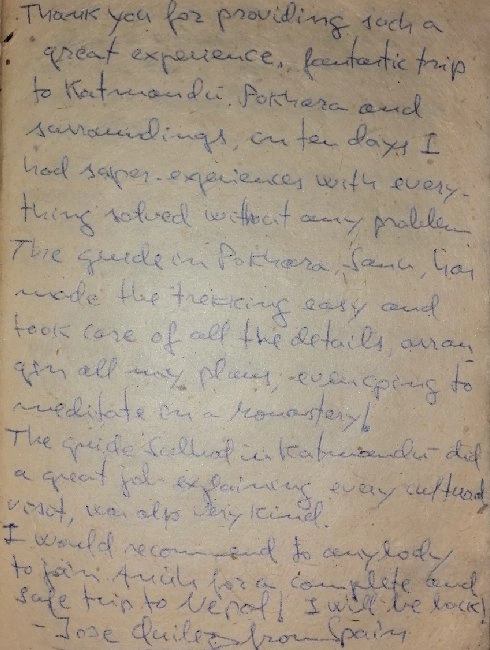 Thank you for providing such a
great experience, fantastic trip
to Katmandú, Pokhara and
surroundings, on ten days I
had super-experiences with every-
thing solved without any problem
The guide in Pokhara, Sanu, has
made the trekking easy and
took care of all the details, arran
gin all my plans, even going to
meditate in a Monastery!
The guide in Katmandú did
a great job explaining every cultural
was also very kind.
I would recommend to anybody
to join for a complete and
safe trip to Nepal! I will be back!
- Jose Quilez from Spain